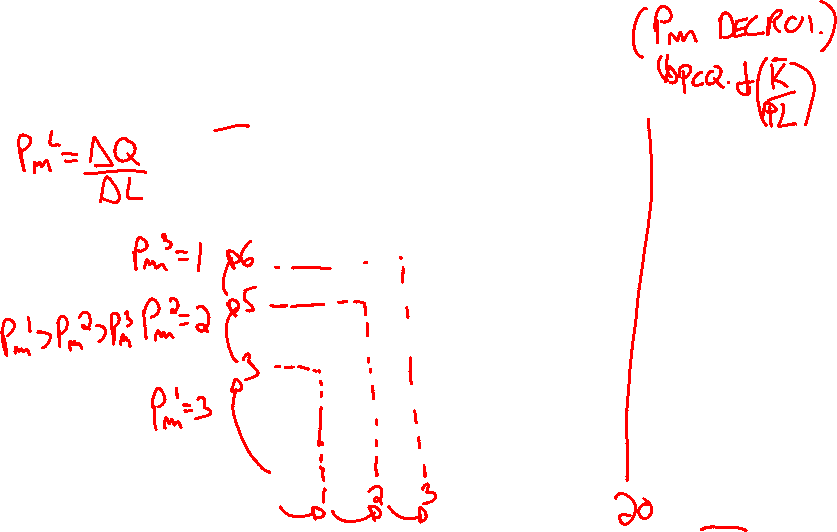 (Pm DECROI.)
Pm^L = ΔQ/ΔL
Pm^3 = 1 6
Pm^1 > Pm^2 > Pm^3 Pm^2 = 2 5
3
Pm^1 = 3
1 2 3 20